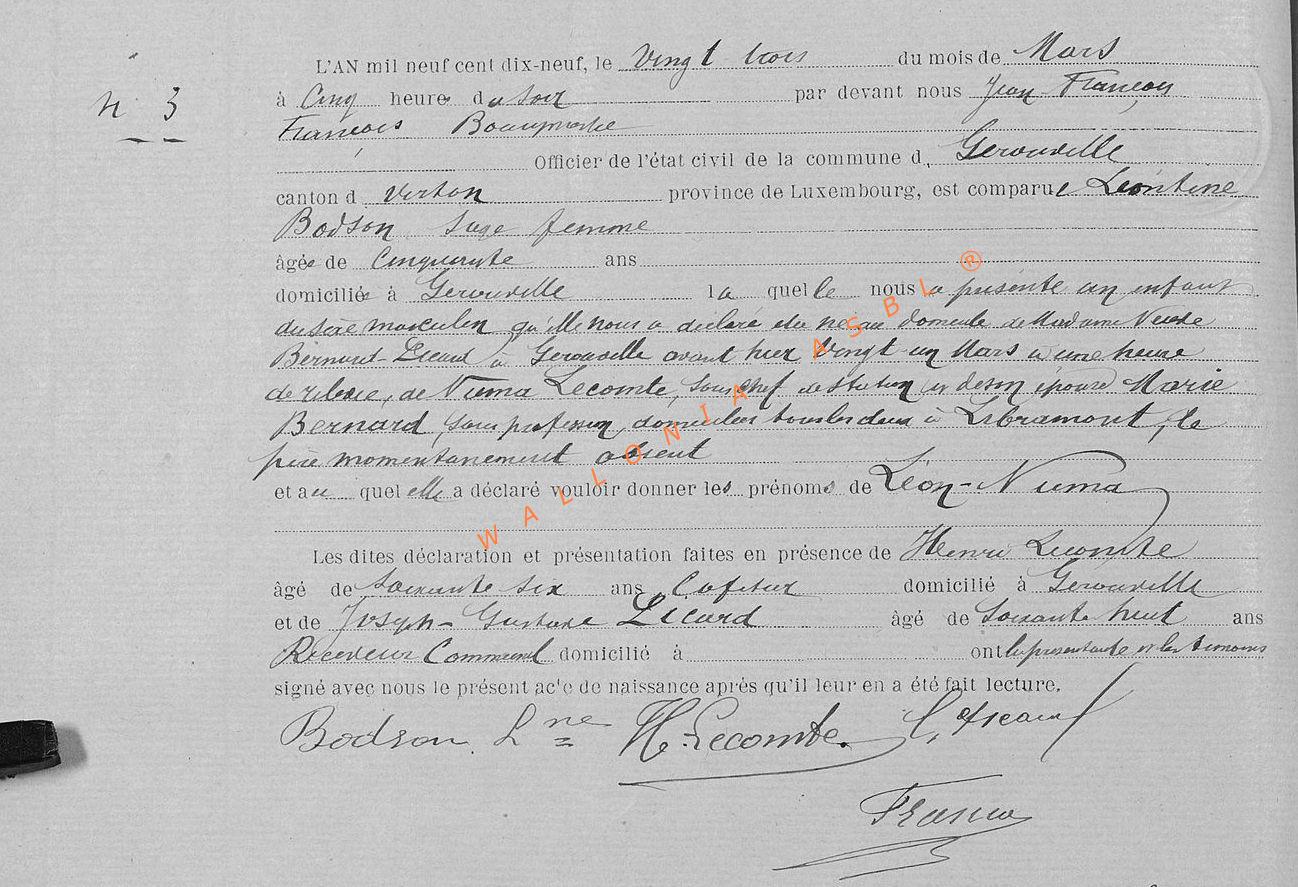 L'AN mil neuf cent dix-neuf, le Vingt trois du mois de Mars
n 3
à Cinq heures du soir par devant nous Jean François
François
Officier de l'état civil de la commune d. Gerouville
canton d Virton province de Luxembourg, est comparue Léontine
Bodson sage femme
âgée de Cinquante ans
domiciliée à Gerouville laquelle nous a présenté un enfant
du sexe masculin qu'elle nous a déclaré être né au domicile de Madame Veuve
Bernard- à Gerouville avant hier vingt un Mars à une heure
de relevée, de Numa Lecomte, sous chef de station et de son épouse Marie
Bernard, sans profession, domiciliés tous les deux à Libramont, le
père momentanement absent
et auquel elle a déclaré vouloir donner les prénoms de Léon-Numa
Les dites déclaration et présentation faites en présence de Henri Lecomte
âgé de soixante six ans domicilié à Gerouville
et de Joseph- Gustave âgé de Soixante huit ans
Receveur Communal domicilié à ont la présentante et les témoins
signé avec nous le présent acte de naissance après qu'il leur en a été fait lecture.
Bodson. Lne H. Lecomte.
WALLONIA ASBL ®